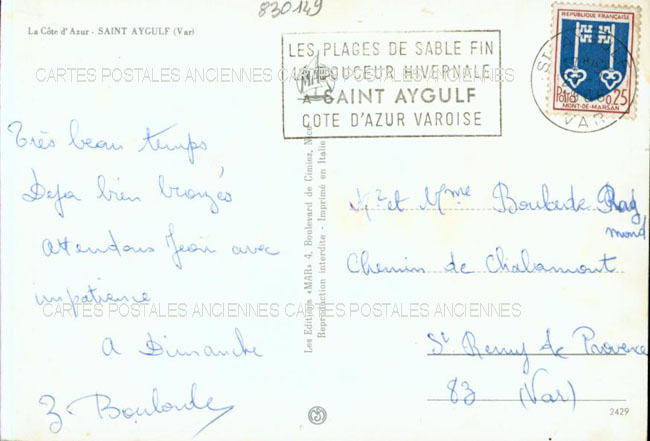 830149
La Côte d'Azur - SAINT AYGULF (Var)
LES PLAGES DE SABLE FIN
DOUCEUR HIVERNALE
A SAINT AYGULF
COTE D'AZUR VAROISE
REPUBLIQUE FRANÇAISE
Postes 0,25
MONT-DE-MARSAN
VAR
CARTES POSTALES ANCIENNES CARTES POSTALES ANCIENNES
Très beau temps
Deja bien bronzés
Attendons Jean avec
impatience
A Dimanche
Les Editions «MAR» 4, Boulevard de Cimiez, Nice
Reproduction interdite - Imprimé en Italie
Mr et Mme Ray
mond
Chemin de Chalamont
St Remy de Provence
83 (Var)
CARTES POSTALES ANCIENNES CARTES POSTALES ANCIENNES
2429